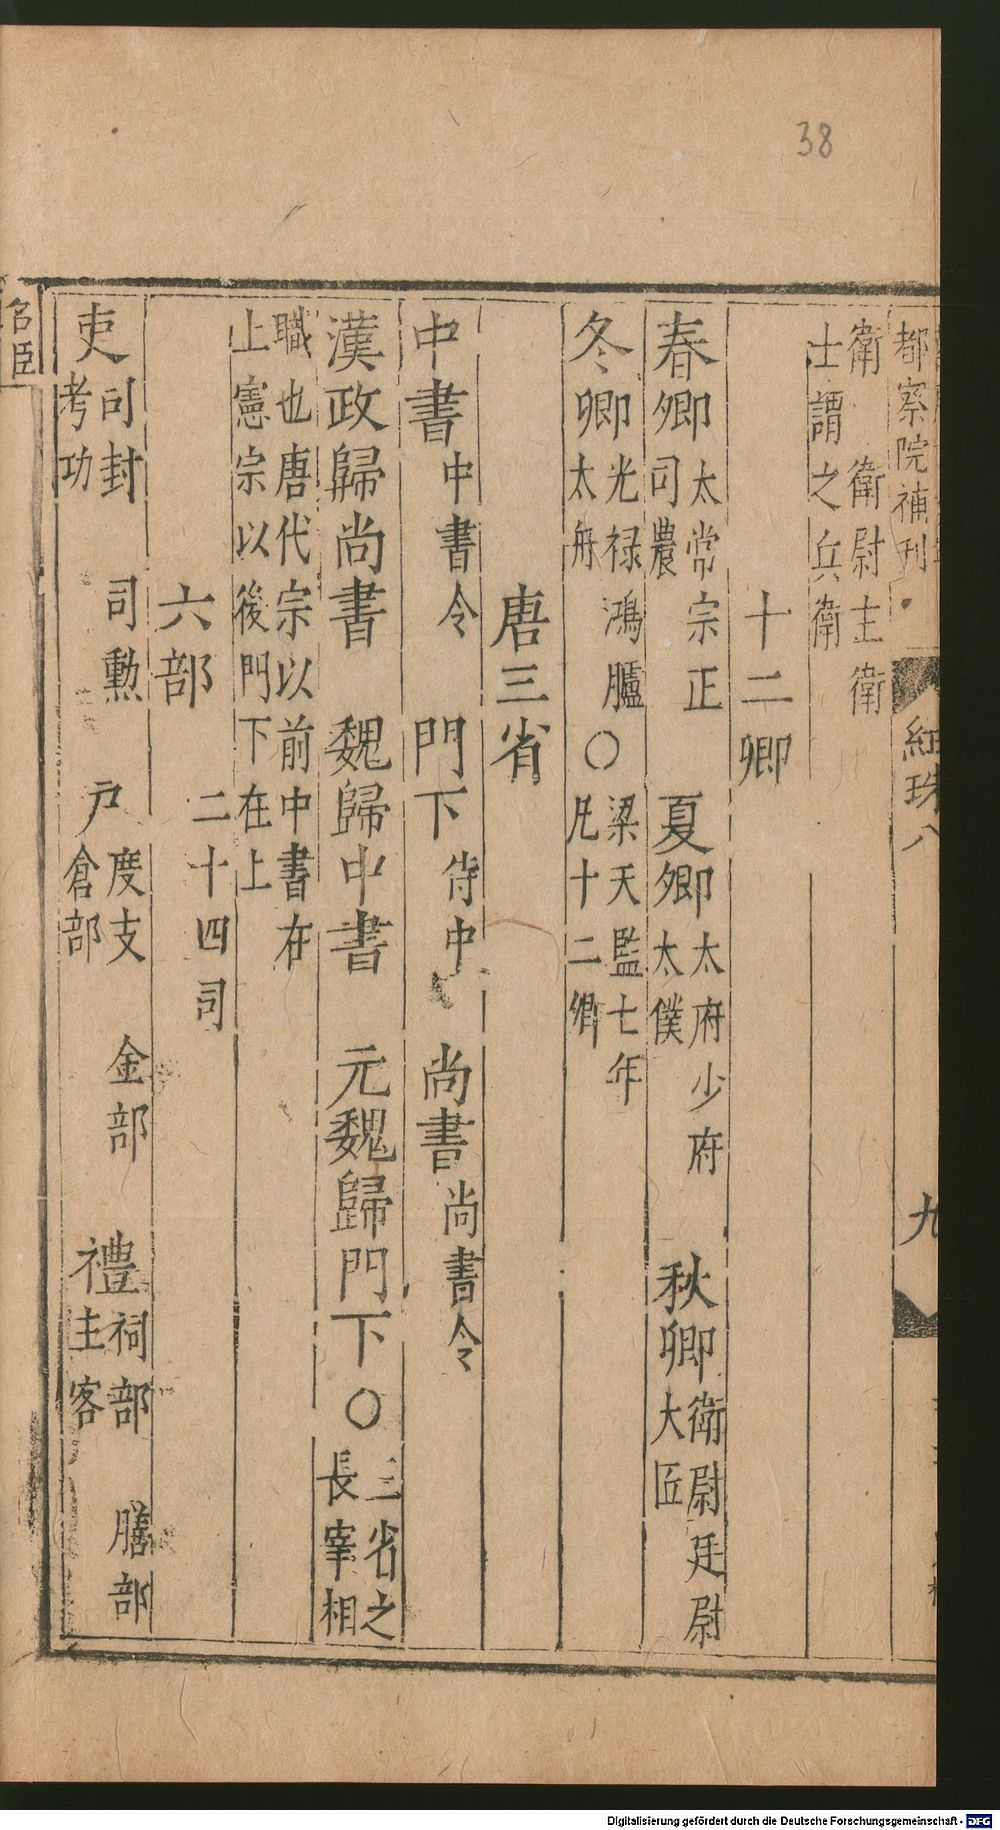 38
都察院補刊
紅珠八
九
衛　衛尉主衛
士謂之兵衛
十二卿
春卿太常宗正
司農
夏卿太府少府
太僕
秋卿衛尉廷尉
大匠
冬卿光禄鴻臚
太舟
○梁天監七年
凡十二卿
唐三省
中書中書令　門下侍中　尚書尚書令
漢政歸尚書　魏歸中書　元魏歸門下○三省之
長宰相
職也唐代宗以前中書在
上憲宗以後門下在上
六部　二十四司
吏司封　司勲
考功
戸度支　金部
倉部
禮祠部　膳部
主客
名臣
Digitalisierung gefördert durch die Deutsche Forschungsgemeinschaft - DFG